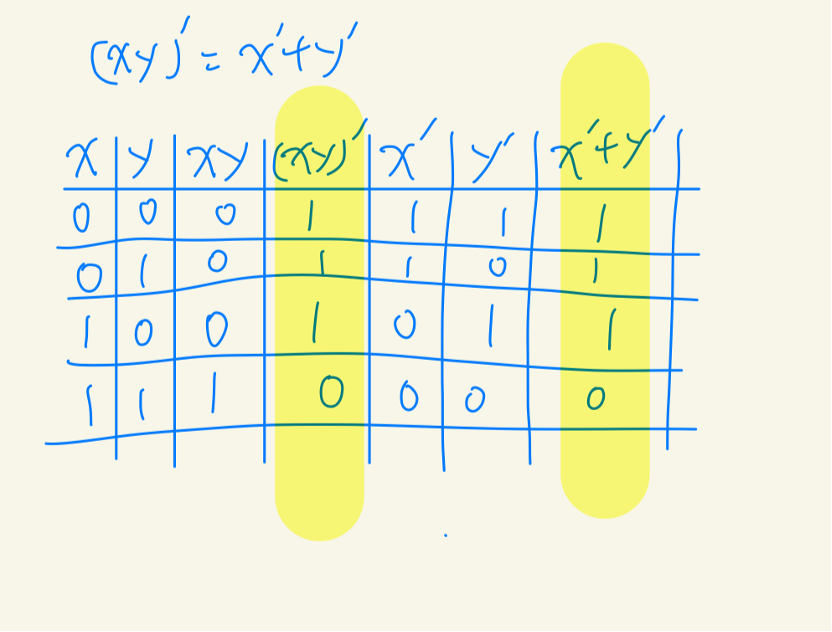 (xy)' = x'+y'
x y xy (xy)' x' y' x'+y'
0 0 0 1 1 1 1
0 1 0 1 1 0 1
1 0 0 1 0 1 1
1 1 1 0 0 0 0